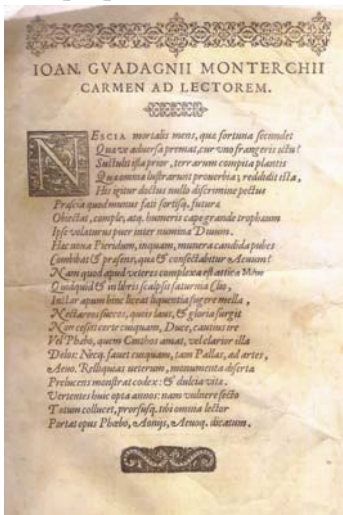 IOAN. GVADAGNII MONTERCHII
CARMEN AD LECTOREM.
NESCIA mortalis mens, qua fortuna secundet
Quave adversa premat, cur vno frangeris ictu?
Sustulit ista prior, terrarum compita plantis
Qua omnia lustrarunt proverbia, reddidit ista,
His igitur doctus nullo discrimine pectus
Præscia quod munus fati fortisq. futura
Obiectat, comple, atq. humeris cape grande trophæum
Ipse volaturus puer inter numina Diuum.
Hac noua Pieridum, inquam, munera candida pubes
Combibat & præsens, qua & consectabitur Æuum?
Nam quod apud veteres complexa est attica
Quidquid & in libris scalpsit saturnia Clio,
Instar apum hinc liceat liquentia sugere mella,
Nectareos succos, quois laus, & gloria surgit
Non cuiquam, Duce, cautius ire
Vel Phæbo, quem Cinthos amat, vel clarior illa
Delos: Necq. fauet cuiquam, tam Pallas, ad artes,
Æuo. Relliquias ueterum, monumenta diserta
Prelucens monstrat codex: & dulcia vita.
Vertentes huic opta annos: nam vulnere secto
Totum collucet, prorsusq. tibi omnia lector
Portat opus Phæbo, Aonijs, Æuoq. dicatum.